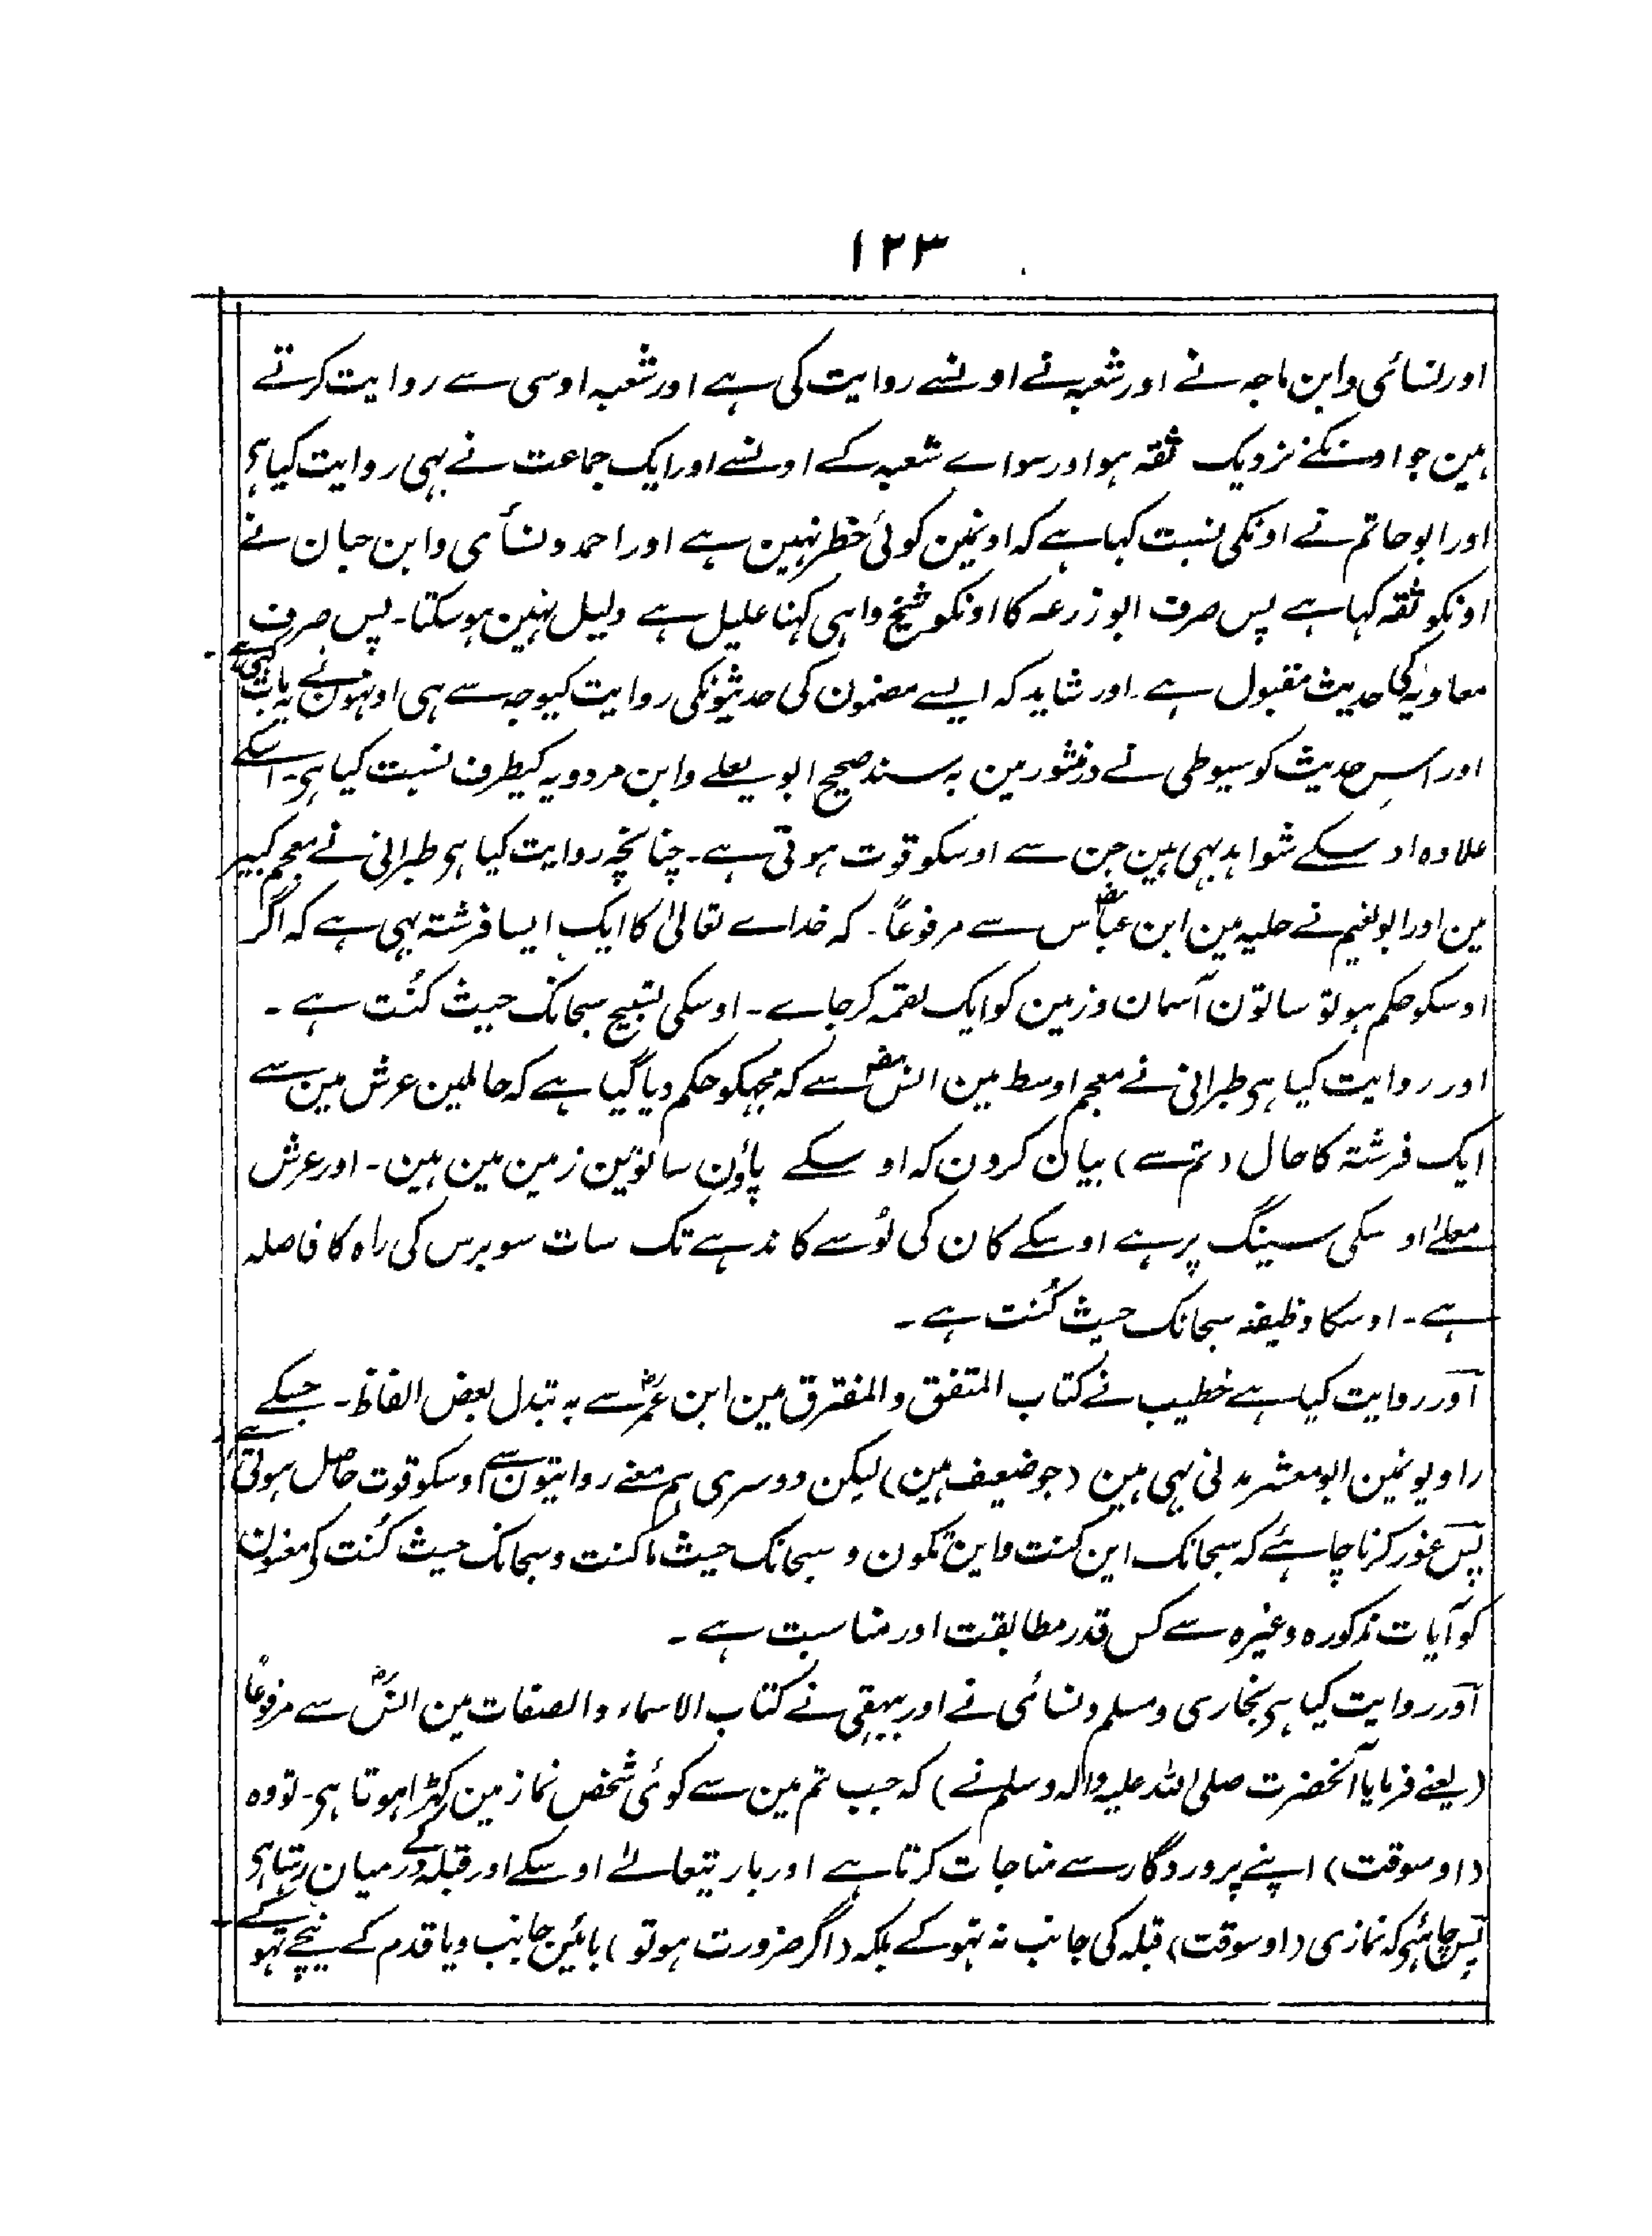 ۱۲۳
اور نسائی و ابن ماجہ نے اور شعبہ نے اونسے روایت کی ہے اور شعبہ اوسی سے روایت کرتے
ہین جو اونکے نزدیک ثقہ ہو اور سواے شعبہ کے اونسے اور ایک جماعت نے بہی روایت کیا ہی
اور ابو حاتم نے اونکی نسبت کہا ہے کہ اونمین کوئی خطر نہین ہے اور احمد و نسأی و ابن حبان نے
اونکو ثقہ کہا ہے پس صرف ابو زرعہ کا اونکو شیخ واہی کہنا علیل ہے دلیل نہین ہو سکتا۔ پس صرف
معاویہ کی حدیث مقبول ہے۔ اور شاید کہ ایسے مضمون کی حدیثونکی روایت کیوجہ سے ہی اونہون نے یہ بات کہی ہے۔
اور اس حدیث کو سیوطی نے درمنثور مین بہ سند صحیح ابو یعلے و ابن مردویہ کیطرف نسبت کیا ہی۔ اسکے
علاوہ اوسکے شواہد بہی ہین جن سے اوسکو قوت ہوتی ہے۔ چنانچہ روایت کیا ہی طبرانی نے معجم کبیر
مین اور ابو نعیم نے حلیہ مین ابن عباسؓ سے مرفوعاً۔ کہ خداے تعالیٰ کا ایک ایسا فرشتہ بہی ہے کہ اگر
اوسکو حکم ہو تو ساتون آسمان و زمین کو ایک لقمہ کر جاے۔ اوسکی تسبیح سبحانک حیث کُنت ہے۔
اور روایت کیا ہی طبرانی نے معجم اوسط مین انسؓ سے کہ مجہکو حکم دیا گیا ہے کہ حاملین عرش مین سے
ایک فرشتہ کا حال (تم سے) بیان کرون کہ اوسکے پاؤن ساتوین زمین مین ہین۔ اور عرش
معلےٰ اوسکی سینگ پر ہے اوسکے کان کی لَو سے کاندہے تک سات سو برس کی راہ کا فاصلہ
ہے۔ اوسکا وظیفہ سبحانک حیث کُنت ہے۔
اور روایت کیا ہے خطیب نے کتاب المتفق والمفترق مین ابن عمرؓ سے بہ تبدل بعض الفاظ۔ جسکے
راویونمین ابو معشر مدنی بہی ہین (جو ضعیف ہین) لیکن دوسری ہم معنے روایتون سے اوسکو قوت حاصل ہوتی ہے
پس غور کرنا چاہئے کہ سبحانک این کنت واین تکون و سبحانک حیث ما کنت و سبحانک حیث کُنت کے معنون
کو آیات مذکورہ وغیرہ سے کس قدر مطابقت اور مناسبت ہے۔
اور روایت کیا ہی بخاری و مسلم و نسائی نے اور بیہقی نے کتاب الاسماء والصفات مین انسؓ سے مرفوعاً
(یعنے فرمایا آنحضرت صلی اللہ علیہ وآلہ وسلم نے) کہ جب تم مین سے کوئی شخص نماز مین کہڑا ہوتا ہی۔ تو وہ
(اوسوقت) اپنے پروردگار سے مناجات کرتا ہے اور باریتعالےٰ اوسکے اور قبلہ کے درمیان رہتا ہی
پس چاہئے کہ نمازی (اوسوقت) قبلہ کی جانب نہ تہوکے بلکہ (اگر ضرورت ہو تو) بائین جانب ویا قدم کے نیچے تہوکے